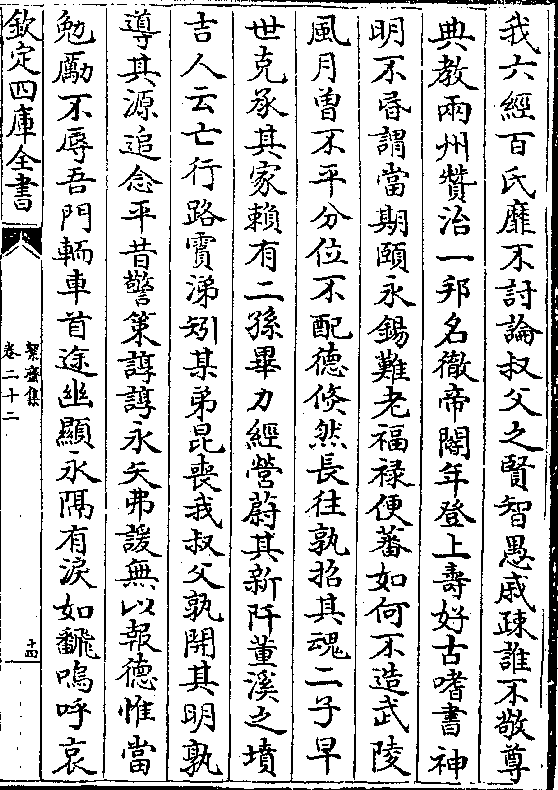 我六經百氏靡不討論叔父之賢智愚戚疎誰不敬尊
典教兩州贊治一邦名徹帝閽年登上壽好古嗜書神
明不昏謂當期頤永錫難老福祿便蕃如何不造武陵
風月曽不平分位不配德倐然長往孰招其魂二子早
世克承其家賴有二孫畢力經營蔚其新阡董溪之墳
吉人云亡行路霣涕矧某弟昆喪我叔父孰開其明孰
導其源追念平昔警策諄諄永矢弗諼無以報德惟當
勉勵不辱吾門輀車首途幽顯永隔有淚如飜嗚呼哀
欽定四庫全書
絜齋集
卷二十二
十四